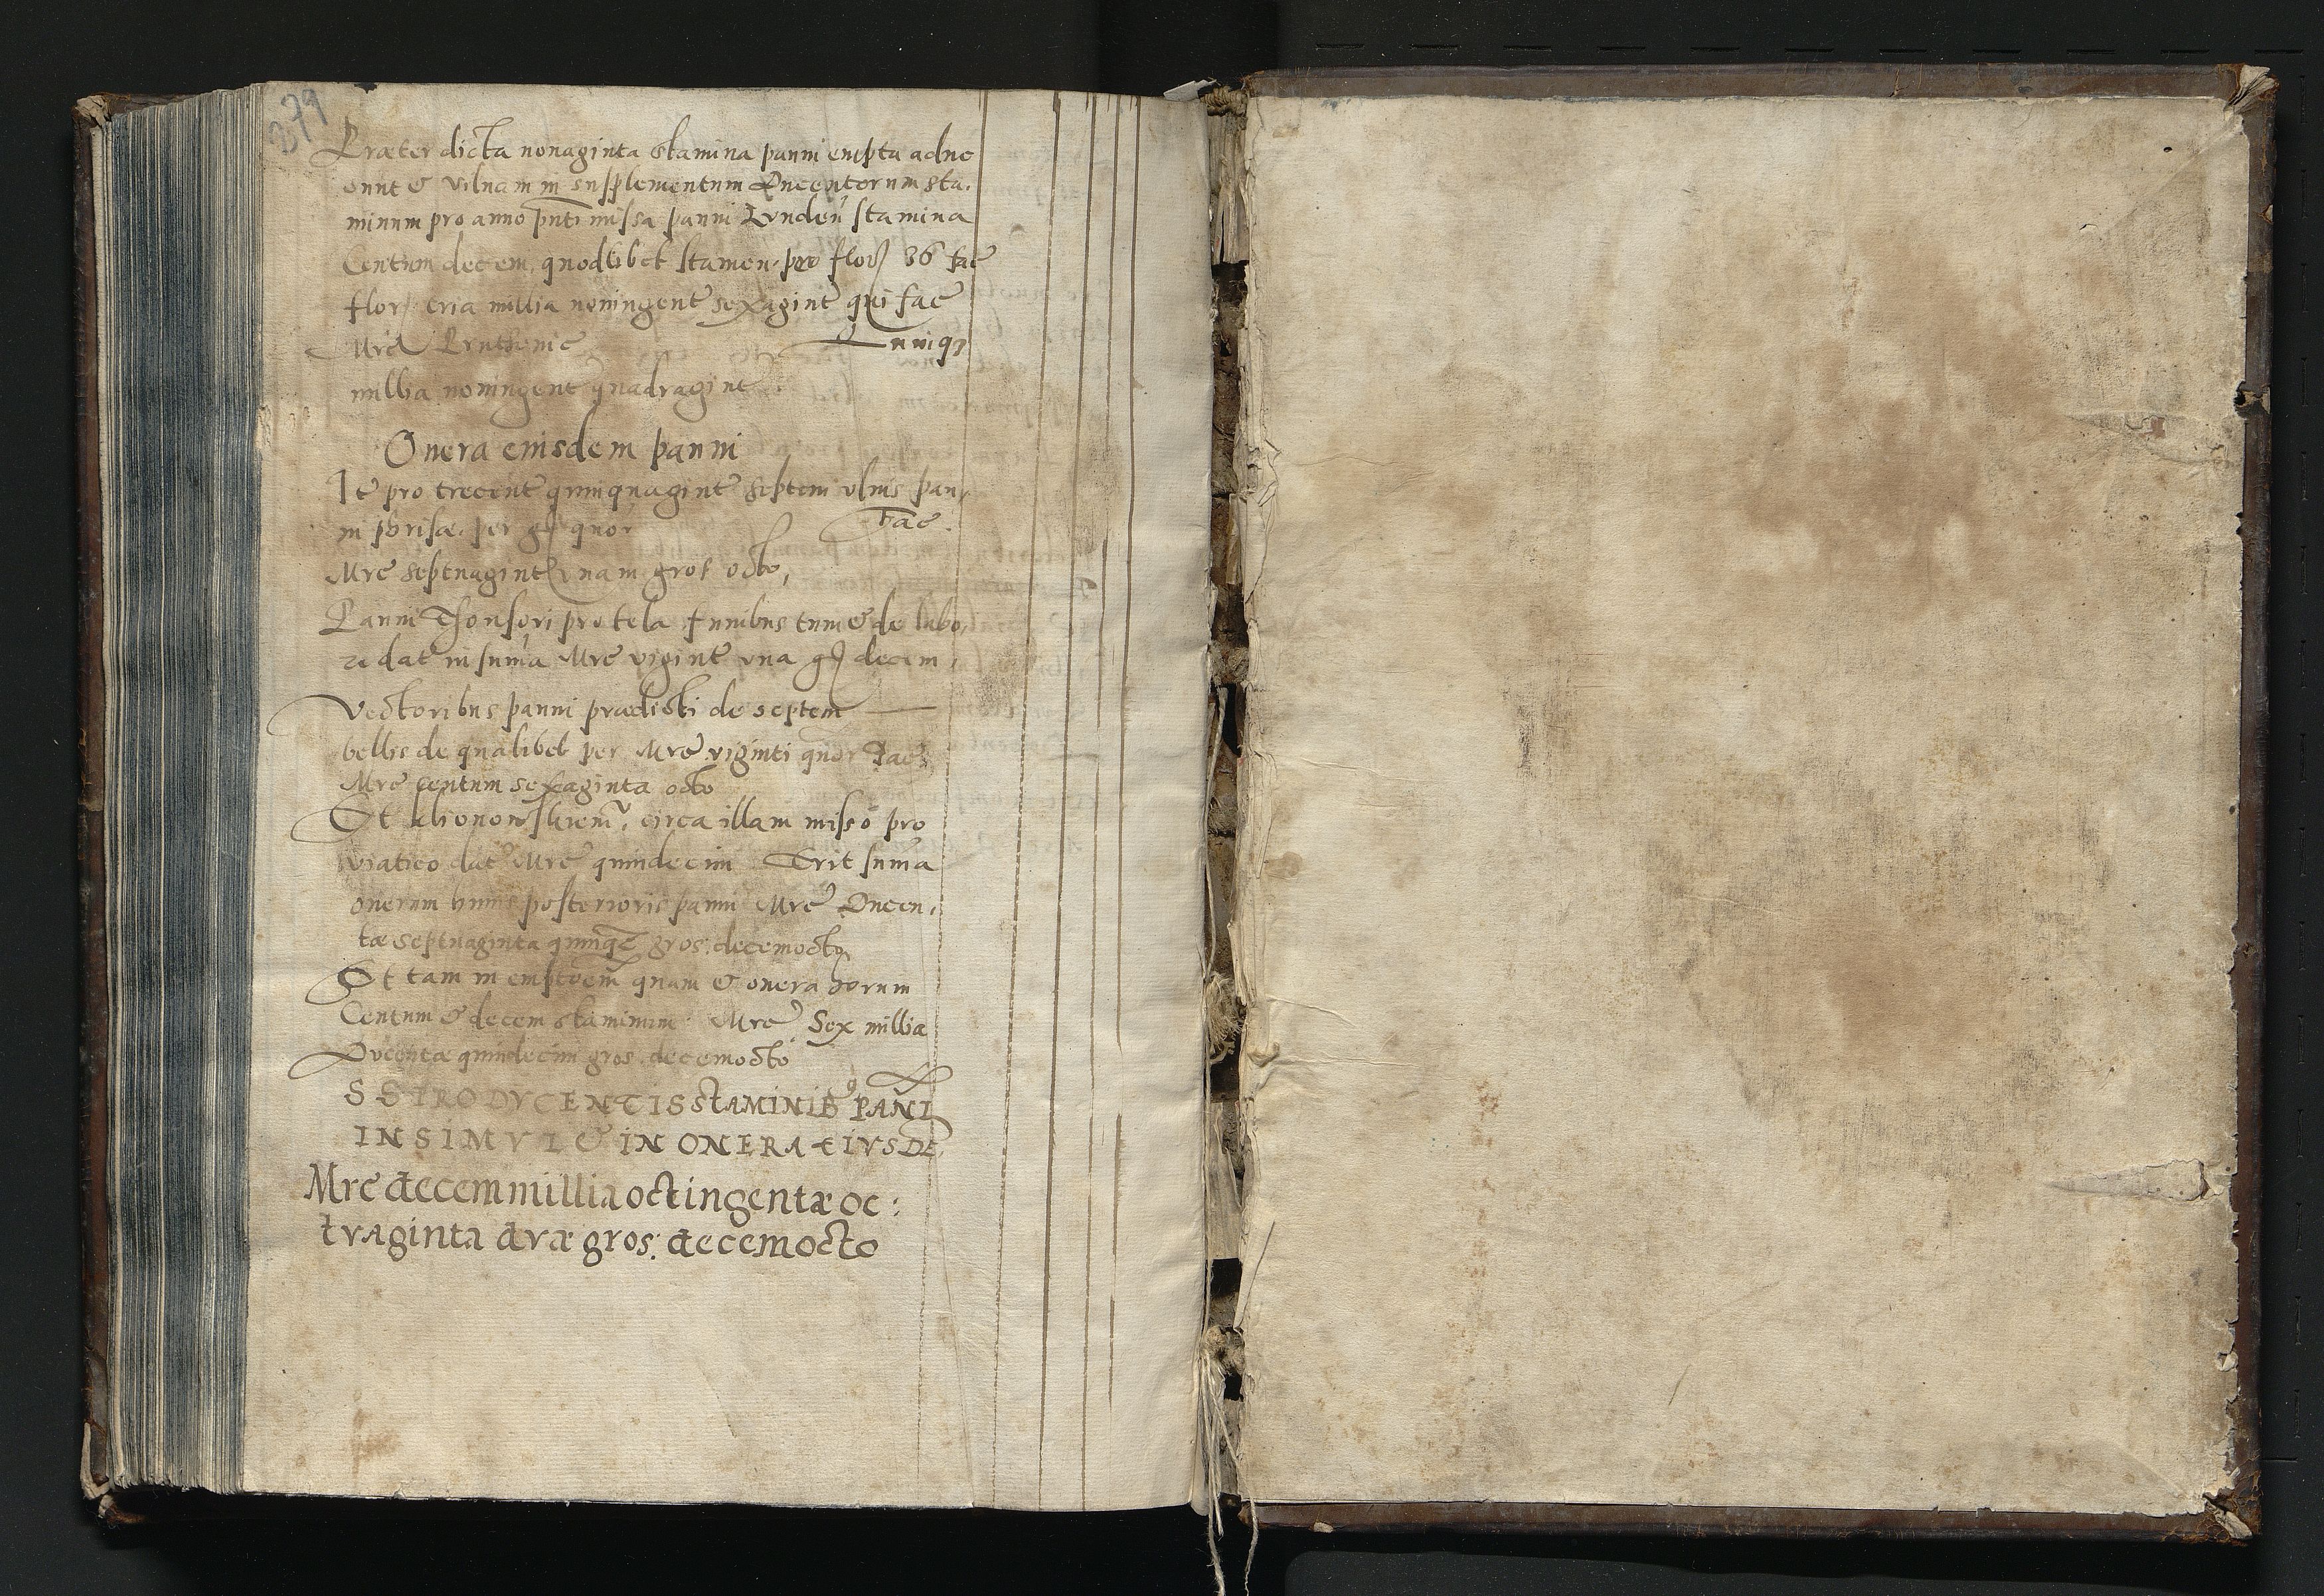 279
Præter dicta nonaginta stamina panni empta adue
erunt & vilnam in supplementum Ducentorum sta,
minum pro anno pnti missa panni Lunden̄ stamina
Centum decem, quodlibet stamen, pro flor 36 fac
flor tria millia noningent sexagint qui fac
Mre Pruthenic Quinq3
millia noningent quadragint
Onera eiusdem panni
Ite pro trecent quinquagint septem vlnis pan,
ni per gr quor fac.
Mre septuagint vnam gros octo,
Panni Thonsori pro tela funibus tum & de labo,
re dat in suma Mre vigint vna gr decem,
Vectoribus panni prædicti de septem
bellis de qualibet per Mre viginti quor Fac
Mre centum sexaginta octo
Et circa illam misso pro
viatico dat Mre quindecim Erit suma
onerum huius posterioris panni Mre Ducen,
tæ septuaginta quinqz gros: decemocto
Et tam in emptoem quam & onera horum
Centum & decem staminum Mre Sex millia
Ducentæ quindecim gros decemocto
S S PRO DVCENTIS STAMINIB9 PAN̄I
IN SIMVL & IN ONERA EIVSDE
Mre decem millia octingentæ oc:
tvaginta dvæ gros: decemocto